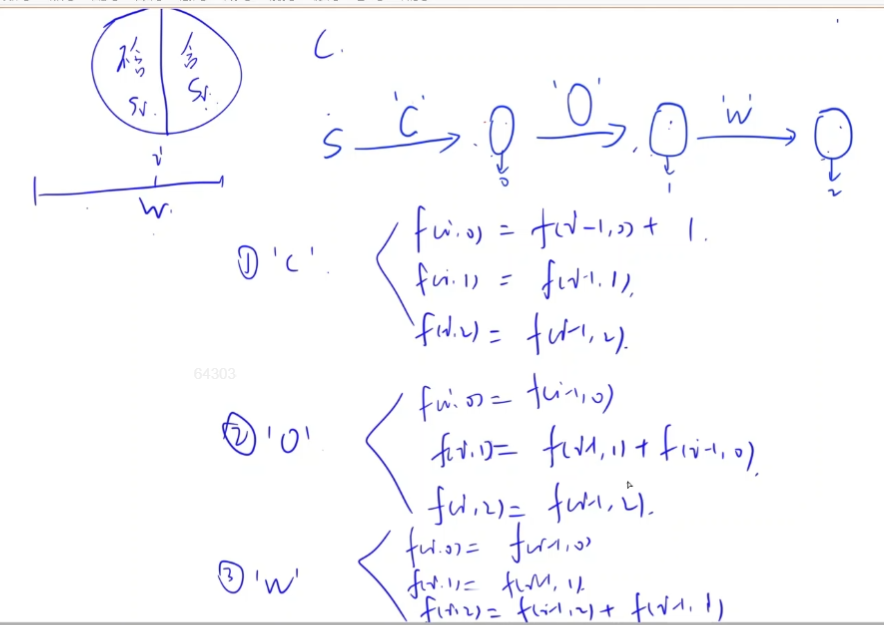 不含 含
Si. Si.
C.
S 'C' 'O' 'W'
0 1 2
i
W.
① 'C'.
f(i.0) = f(i-1,0) + 1.
f(i.1) = f(i-1.1).
f(i.2) = f(i-1,2).
64303
② 'O'
f(i.0) = f(i-1,0)
f(i,1) = f(i-1,1) + f(i-1,0).
f(i,2) = f(i-1,2).
③ 'W'
f(i.0) = f(i-1,0)
f(i.1) = f(i-1,1).
f(i,2) = f(i-1,2) + f(i-1,1)